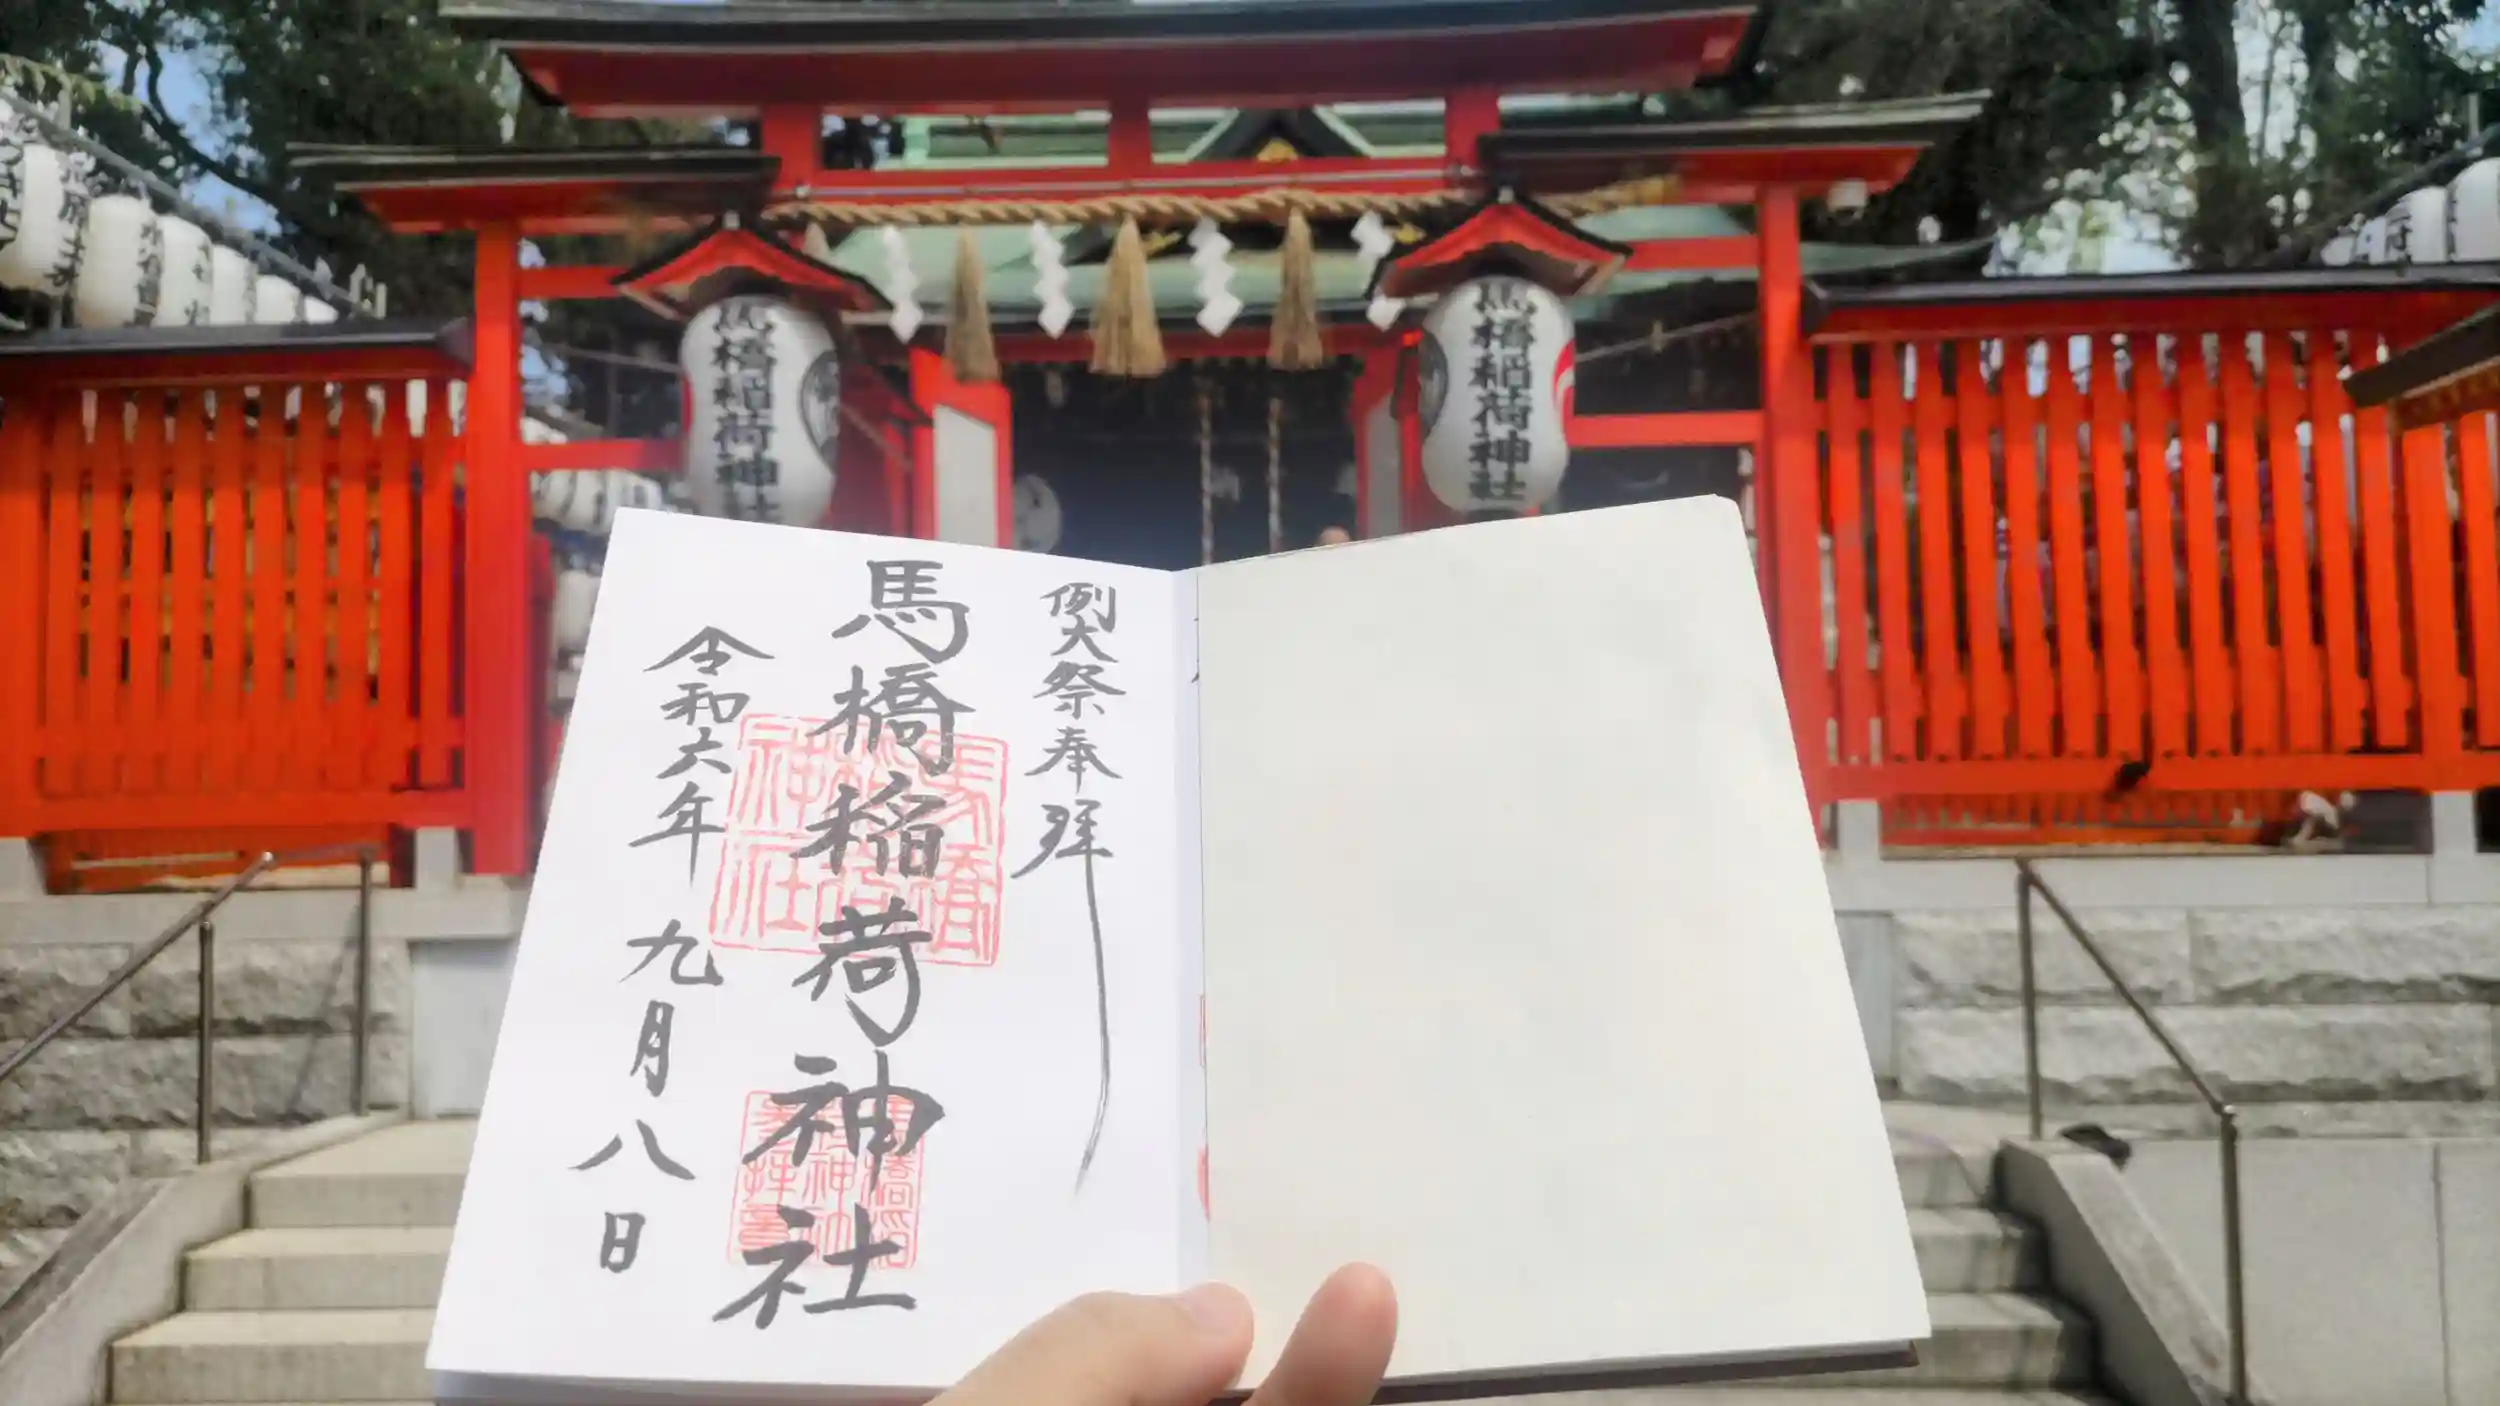 馬橋稲荷神社
馬橋稲荷神社
例大祭奉拝
馬橋稲荷神社
令和六年 九月八日